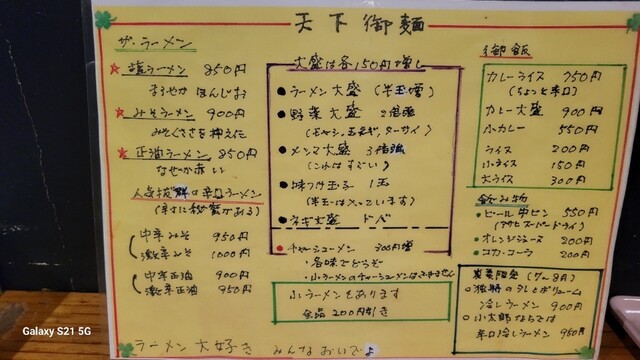 天下御麺
ザ・ラーメン
☆塩ラーメン 850円
まろやか ほんじお
☆みそラーメン 900円
みそくささを押えた
☆正油ラーメン 850円
なぜか赤い
人気抜群の辛口ラーメン
(辛さに秘密がある)
中辛みそ 950円
激辛みそ 1000円
中辛正油 900円
激辛正油 950円
大盛は各150円増し
●ラーメン大盛 (半玉増)
●野菜大盛 2倍強
(モヤシ、玉ネギ、ターサイ)
●メンマ大盛 3倍強
(これはすごい)
●味つけ玉子 1玉
(半玉は入っています)
●ネギ大盛 ドバ
●チャーシューメン 300円増
・各味でどうぞ
・小ラーメンのチャーシューメンはできません
小ラーメンもあります
全品200円引き
御飯
カレーライス 750円
(ちょっと辛口)
カレー大盛 900円
小カレー 550円
ライス 200円
小ライス 150円
大ライス 300円
飲み物
●ビール中ビン 550円
(アサヒスーパードライ)
●オレンジジュース 200円
●コカ・コーラ 200円
夏季限定 (7〜8月)
○独特のタレとボリューム
冷しラーメン 900円
○小太郎ならでは
辛口冷しラーメン 950円
ラーメン大好き みんなおいでよ
Galaxy S21 5G